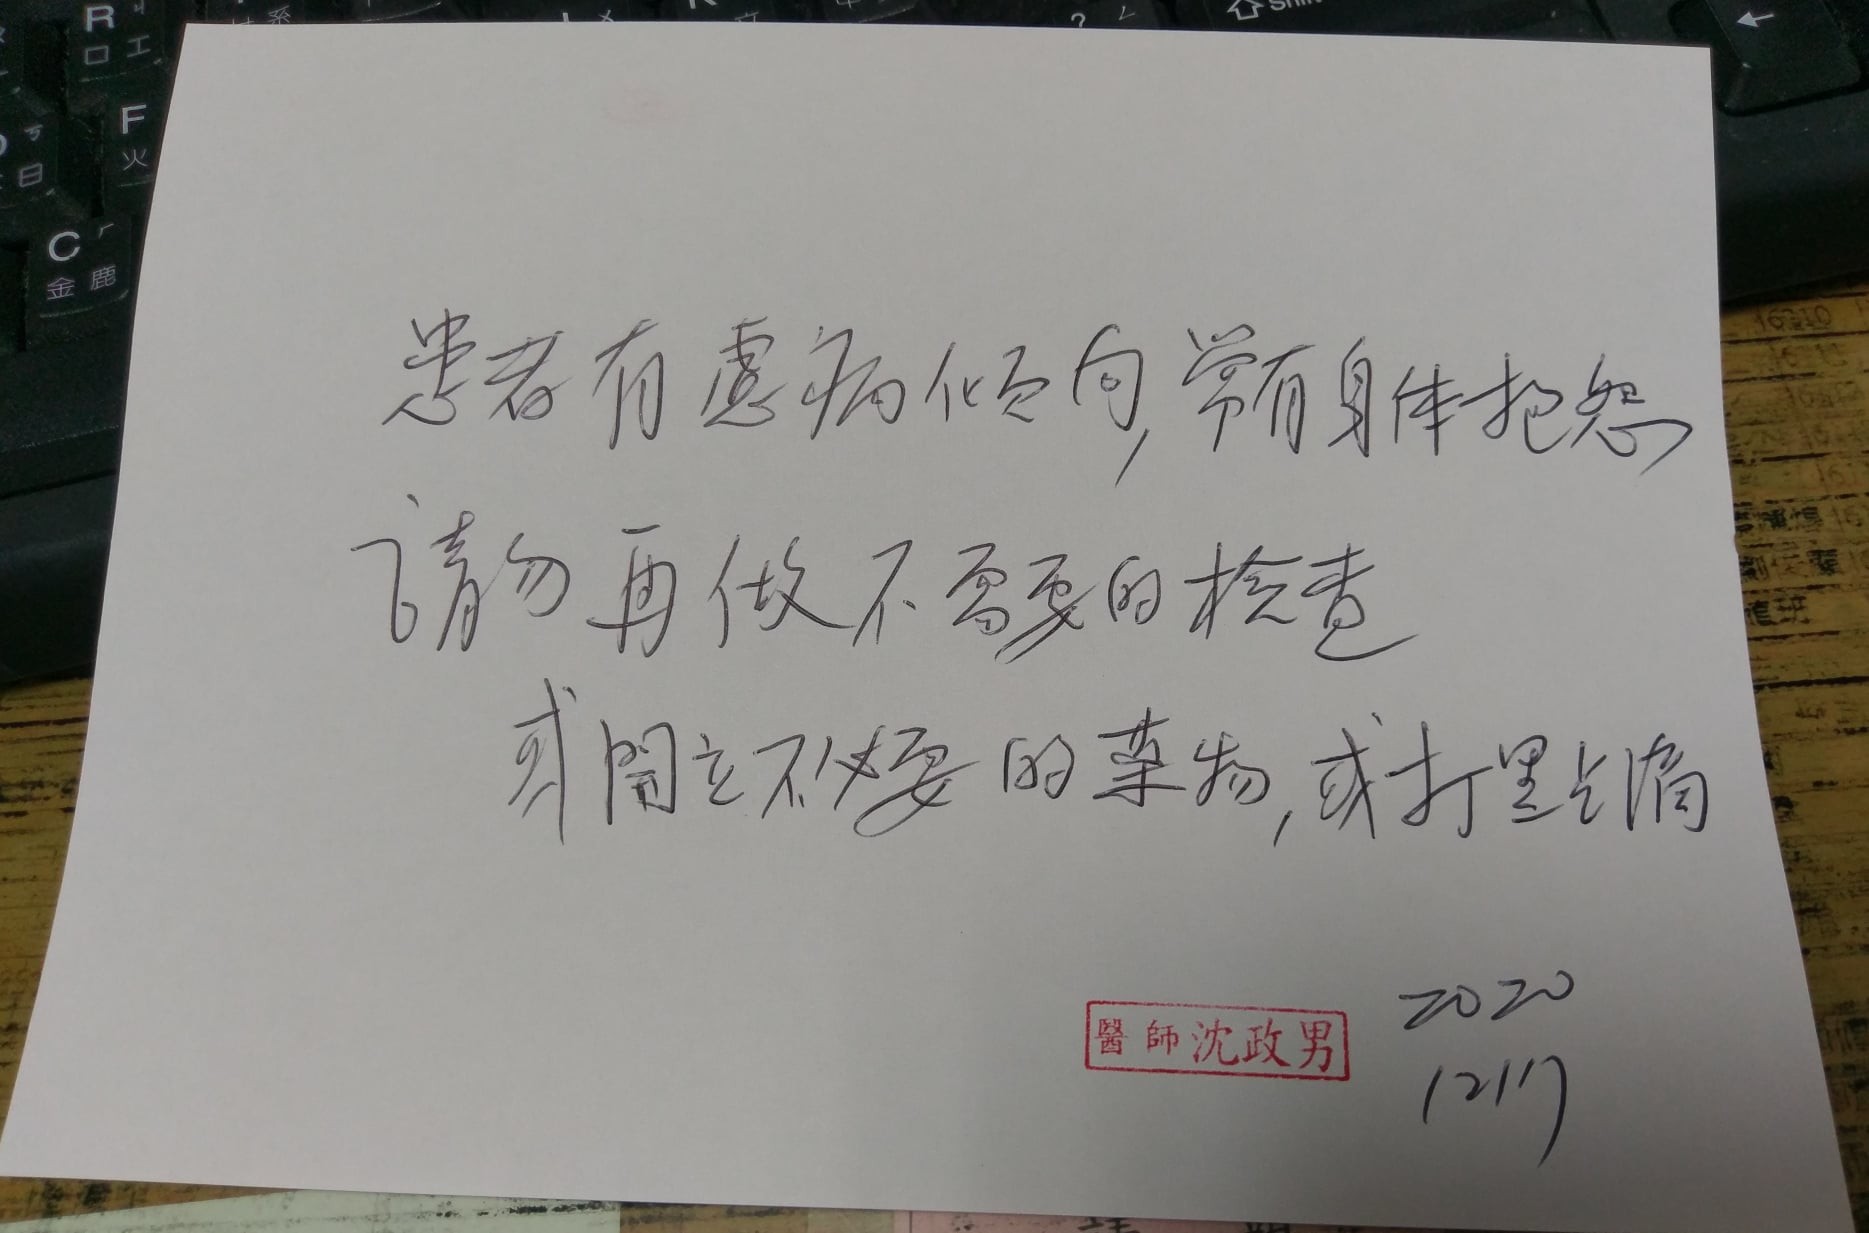 R
口 工
F
火
日
C
金 鹿
shift
患者有慮病傾向,常有身体抱怨
請勿再做不需要的檢查
或開立不必要的葯物,或打點滴
醫師沈政男
2020
12/17